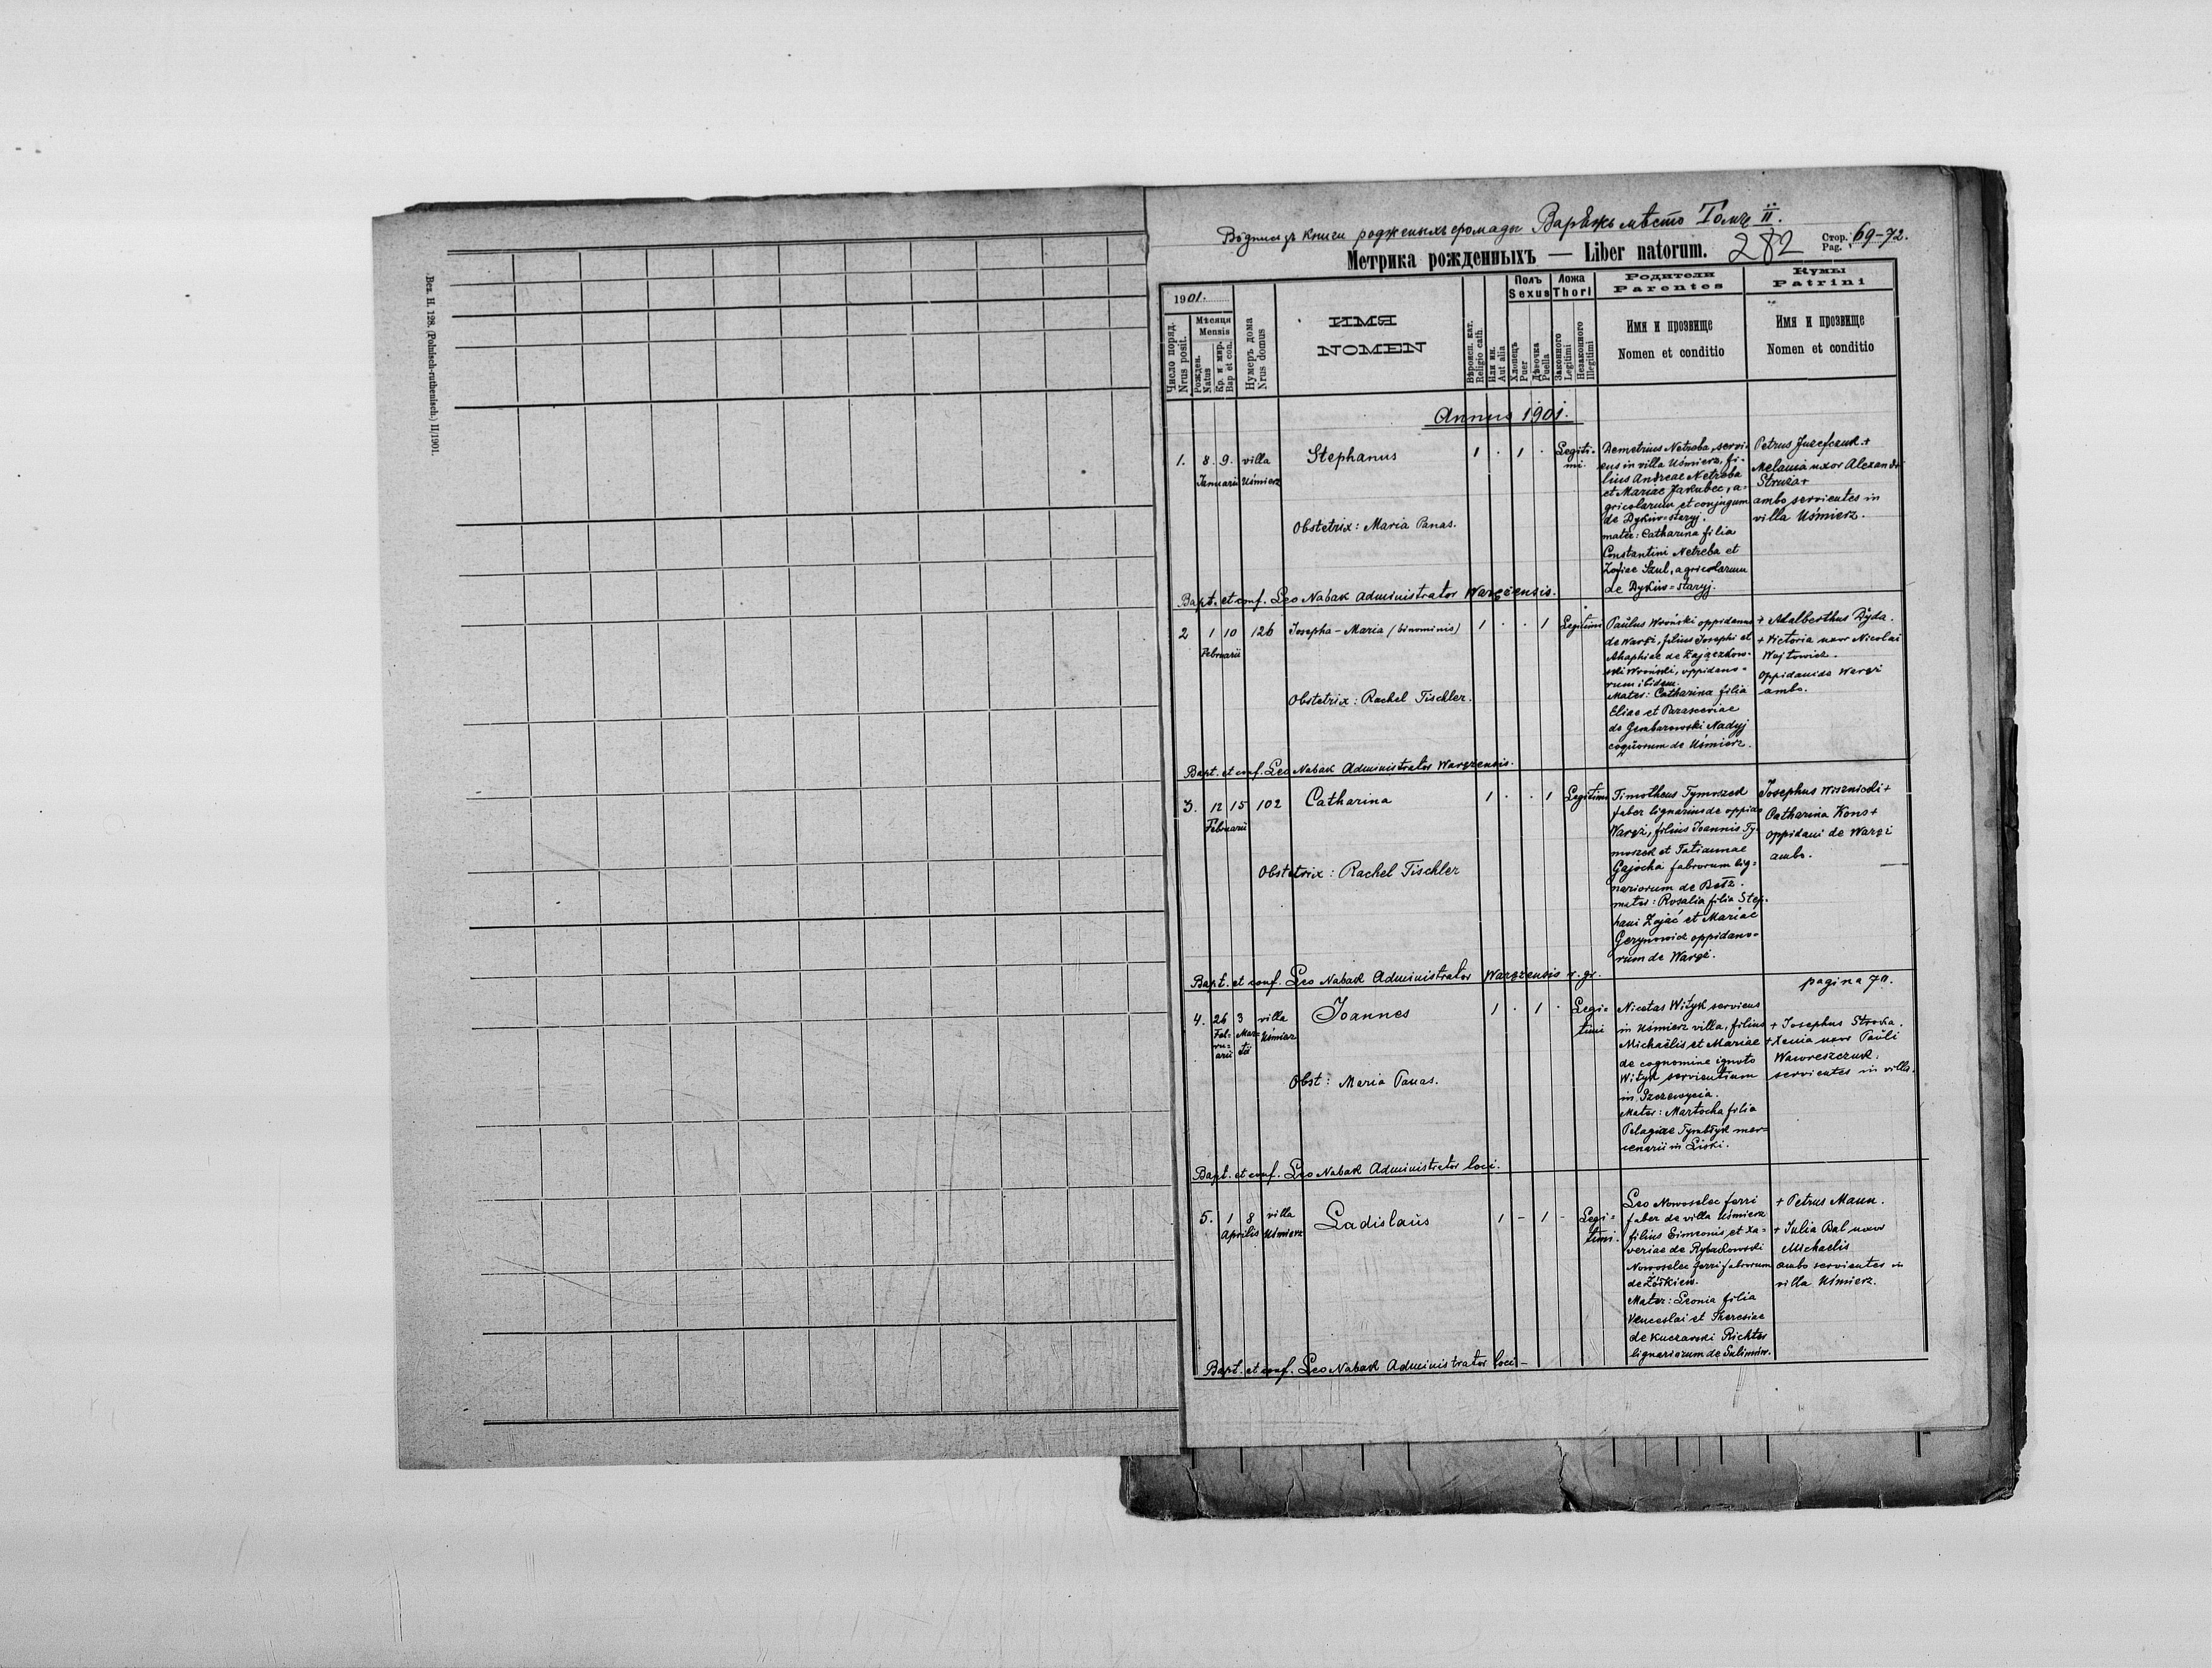 Bez. H. 128. (Polnisch-ruthenisch.) II/1901.
Вôдпись зъ книги родженыхъ громады Варѣжъ мѣсто Томъ II.
Метрика рожденныхъ — Liber natorum. 282
Стор. Pag. 69-72.
1901.
Число поряд.
Nrus posit.
Мѣсяця
Mensis
Рожден.
Natus
Кр. и мир.
Bap et con.
Нумеръ дома
Nrus domus
ИМЯ
NOMEN
Вѣроисп. кат.
Religio cath.
Или ин.
Aut alia
Полъ
Sexus
Хлопецъ
Puer
Дѣвочка
Puella
Ложа
Thori
Законного
Legitimi
Незаконного
Illegitimi
Родители
Parentes
Имя и прозвище
Nomen et conditio
Кумы
Patrini
Имя и прозвище
Nomen et conditio
Annus 1901.
1. 8. 9. villa Stephanus 1 · 1 · Legiti-
mi.
Januarii Uśmierz
Obstetrix: Maria Panas.
Demetrius Netreba, servi-
ens in villa Uśmierz, fi-
lius Andreae Netreba
et Mariae Jakubec, a-
gricolarum et conjugum
de Dykiw-staryj.
mater: Catharina filia
Constantini Netreba et
Zofiae Szul, agricolarum
de Dykiw=staryj.
Petrus Juzefczuk. +
Melania uxor Alexandri
Struza +
ambo servientes in
villa Uśmierz.
Bapt. et conf. Leo Nabak Administrator Waręzensis.
2 1 10 126 Josepha-Maria (binominis) 1 · · 1 Legitimi
Februarii
Obstetrix: Rachel Tischler.
Paulus Wroński oppidanus
de Waręż, filius Josephi et
Ahaphiae de Zajączkow-
ski Wroński, oppidano-
rum ibidem.
Mater: Catharina filia
Eliae et Parasceviae
de Gembarowski Nadyj
coquorum de Uśmierz.
+ Adalberthus Dyda.
+ Victoria uxor Nicolai
Wojtowicz.
oppidani de Waręż
ambo.
Bapt. et conf. Leo Nabak Administrator Waręzensis.
3. 12 15 102 Catharina 1 · · 1 Legitimi
Februarii
Obstetrix: Rachel Tischler
Timotheus Tymoszek
faber lignarius de oppido
Waręż, filius Joannis Ty-
moszek et Tatiannae
Gajocha fabrorum lig-
nariorum de Bełz.
mater: Rosalia filia Step-
hani Zając et Mariae
Gerynowicz oppidano-
rum de Waręż.
Josephus Woznicki +
Catharina Kons +
oppidani de Waręż
ambo.
Bapt. et conf. Leo Nabak Administrator Waręzensis r. gr.
pagina 70.
4. 26 3 villa Joannes 1 · 1 · Legi-
timi
Feb-
ru-
arii
Mar-
tii
Uśmierz
Obst: Maria Panas.
Nicetas Wityk serviens
in Uśmierz villa, filius
Michaëlis et Mariae
de cognomine ignoto
Wityk servientium
in
Mater: Martocha filia
Pelagiae mer-
cenarii in Liski.
+ Josephus
+ Xenia uxor Pauli
Waworeszczuk.
servientes in villa.
Bapt. et conf. Leo Nabak Administrator loci.
5. 1 8 villa Ladislaus 1 - 1 - Legi-
timi.
Aprilis Uśmierz
Leo Nowoselec ferri
faber de villa Uśmierz
filius Simeonis et Xa-
veriae de Rybakowski
Nowoselec ferri fabrorum
de Żółkiew.
Mater: Leonia filia
Venceslai et Theresiae
de Kuczarski Richter
lignariorum de
+ Petrus Maun.
+ Julia Bal uxor
Michaelis
ambo servientes in
villa Uśmierz.
Bapt. et conf. Leo Nabak Administrator loci -